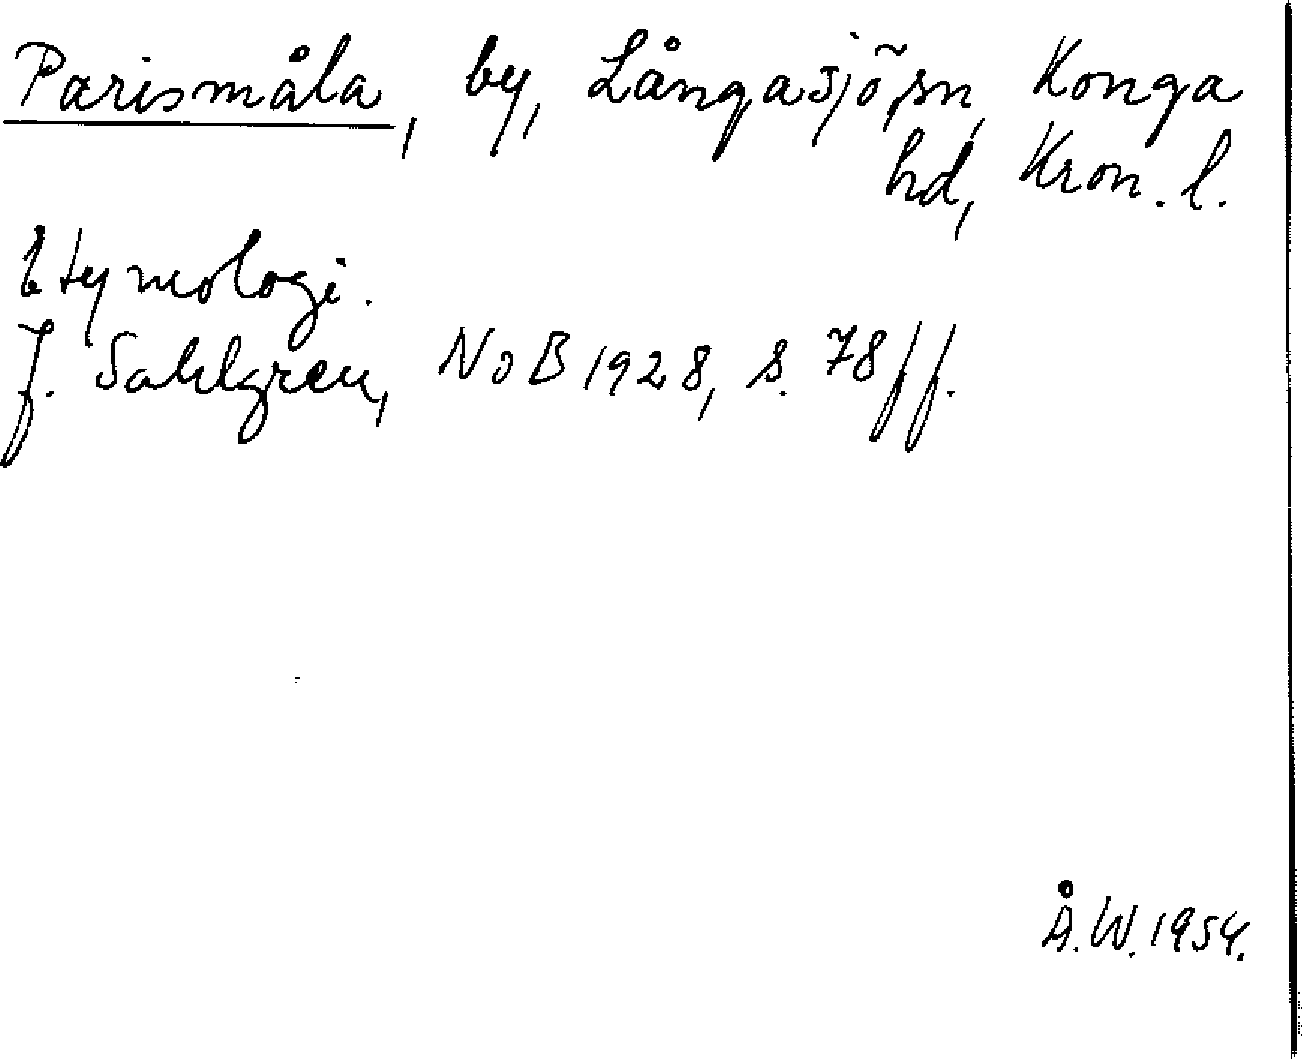 Parismåla, by, Långasjö sn, Konga
hd, Kron. l.
Etymologi.
J. Sahlgren, NoB 1928, s. 78 ff.
Å. W. 1954.